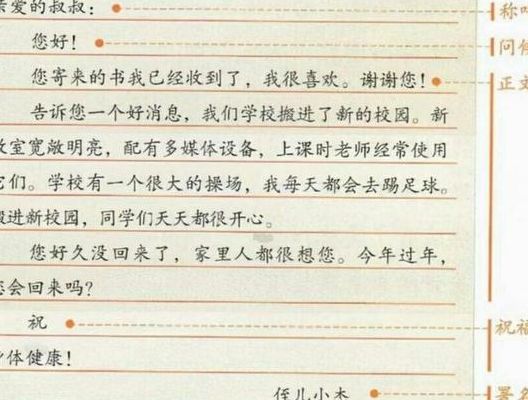 亲爱的叔叔： 称呼
您好！ 问候
您寄来的书我已经收到了，我很喜欢。谢谢您！ 正文
告诉您一个好消息，我们学校搬进了新的校园。新
教室宽敞明亮，配有多媒体设备，上课时老师经常使用
它们。学校有一个很大的操场，我每天都会去踢足球。
搬进新校园，同学们天天都很开心。
您好久没回来了，家里人都很想您。今年过年，
您会回来吗？
祝 祝福
身体健康！
侄儿小杰 署名